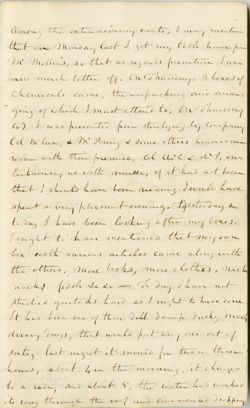 Among the extraordinary events, I may mention
that on Monday last I got my table home from
Mr Mullin's, so that as regards furniture I am
now much better off. On Thursday 3 boxes of
Chemicals came, the unpacking and arran-
ging of which I must attend to. On Thursday
I was prevented from studying by company
Col & Mr & some others honored our
room with their presence, Col & Mr P. en-
tertaining us with music, & if it had not been
that I should have been reading I would have
spent a very pleasant evening. Yesterday &
to day I have been looking after my boxes.
I ought to have mentioned that my own
box with various articles came along with
the others. More books, more clothes, nick
nacks fiddle &c &c —. To day I have not
studied quite as hard as I ought to have done
It has been one of them dull damp dusky, misty
dreary days, that would put any one out of
last night it snowed for two or three
hours, about 4 in the morning, it changed
to a rain, and about 8, the water had worked
its way through the roof and commenced dripping